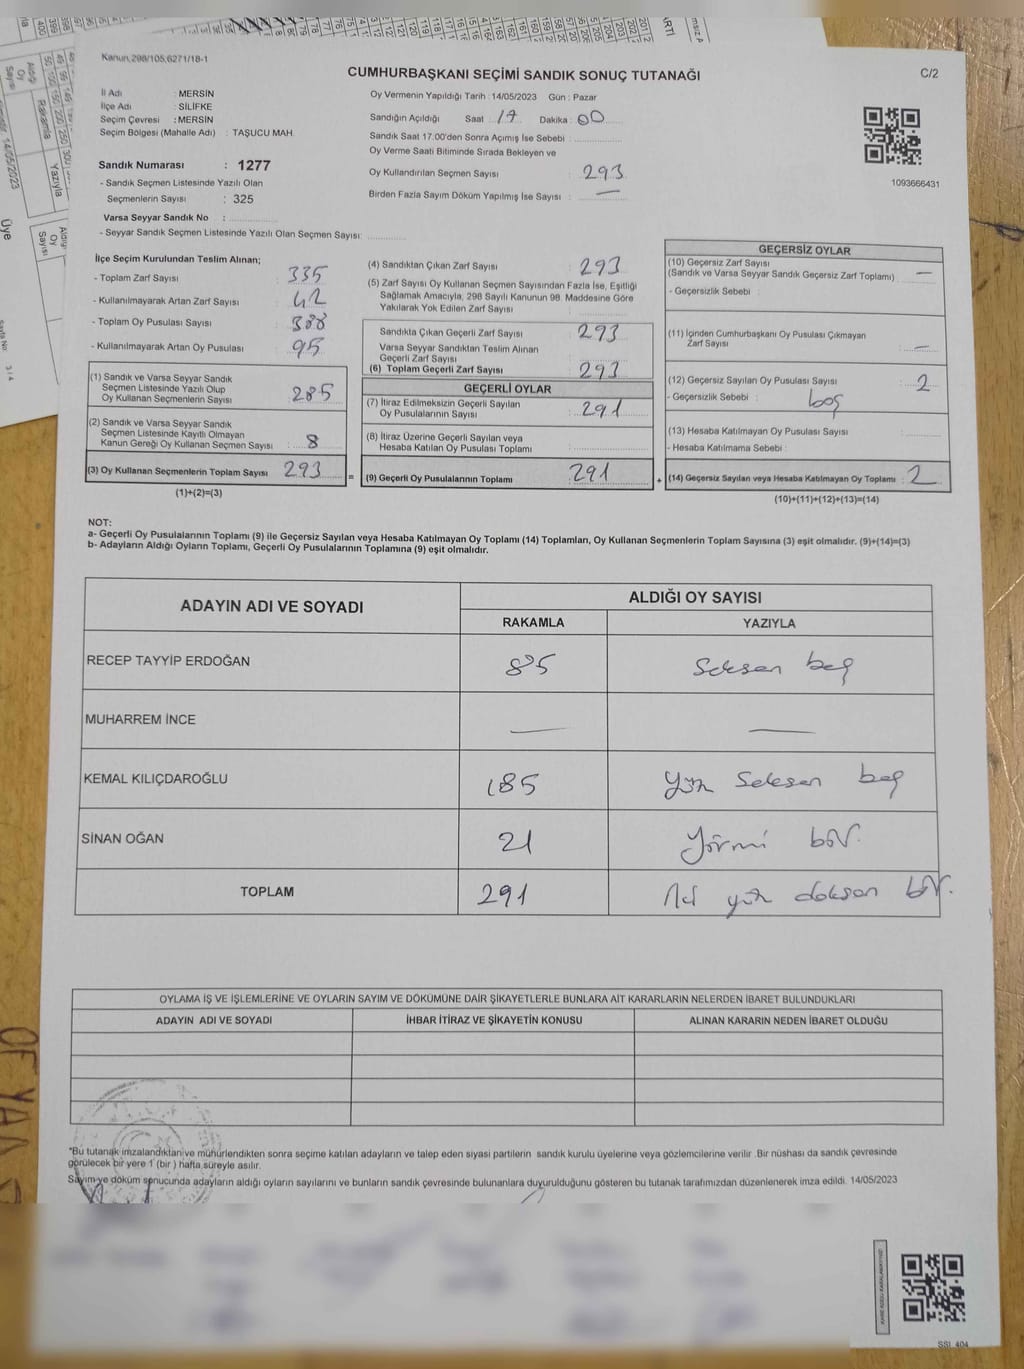 Kanun,298/105,6271/18-1
CUMHURBAŞKANI SEÇİMİ SANDIK SONUÇ TUTANAĞI
C/2
İl Adı : MERSİN
İlçe Adı : SİLİFKE
Seçim Çevresi : MERSİN
Seçim Bölgesi (Mahalle Adı) : TAŞUCU MAH.
Sandık Numarası : 1277
- Sandık Seçmen Listesinde Yazılı Olan
Seçmenlerin Sayısı : 325
Varsa Seyyar Sandık No :
- Seyyar Sandık Seçmen Listesinde Yazılı Olan Seçmen Sayısı:
Oy Vermenin Yapıldığı Tarih : 14/05/2023 Gün : Pazar
Sandığın Açıldığı Saat : 17 Dakika : 00
Sandık Saat 17.00'den Sonra Açımış İse Sebebi :
Oy Verme Saati Bitiminde Sırada Bekleyen ve
Oy Kullandırılan Seçmen Sayısı : 293
Birden Fazla Sayım Döküm Yapılmış İse Sayısı : —
1093666431
İlçe Seçim Kurulundan Teslim Alınan;
- Toplam Zarf Sayısı : 335
- Kullanılmayarak Artan Zarf Sayısı : 42
- Toplam Oy Pusulası Sayısı :
- Kullanılmayarak Artan Oy Pusulası : 95
(1) Sandık ve Varsa Seyyar Sandık
Seçmen Listesinde Yazılı Olup
Oy Kullanan Seçmenlerin Sayısı : 285
(2) Sandık ve Varsa Seyyar Sandık
Seçmen Listesinde Kayıtlı Olmayan
Kanun Gereği Oy Kullanan Seçmen Sayısı : 8
(3) Oy Kullanan Seçmenlerin Toplam Sayısı : 293
(1)+(2)=(3)
(4) Sandıktan Çıkan Zarf Sayısı : 293
(5) Zarf Sayısı Oy Kullanan Seçmen Sayısından Fazla İse, Eşitliği
Sağlamak Amacıyla, 298 Sayılı Kanunun 98. Maddesine Göre
Yakılarak Yok Edilen Zarf Sayısı :
Sandıkta Çıkan Geçerli Zarf Sayısı : 293
Varsa Seyyar Sandıktan Teslim Alınan
Geçerli Zarf Sayısı :
(6) Toplam Geçerli Zarf Sayısı : 293
GEÇERLİ OYLAR
(7) İtiraz Edilmeksizin Geçerli Sayılan
Oy Pusulalarının Sayısı : 291
(8) İtiraz Üzerine Geçerli Sayılan veya
Hesaba Katılan Oy Pusulası Toplamı :
= (9) Geçerli Oy Pusulalarının Toplamı : 291 +
GEÇERSİZ OYLAR
(10) Geçersiz Zarf Sayısı
(Sandık ve Varsa Seyyar Sandık Geçersiz Zarf Toplamı) : —
- Geçersizlik Sebebi :
(11) İçinden Cumhurbaşkanı Oy Pusulası Çıkmayan
Zarf Sayısı : —
(12) Geçersiz Sayılan Oy Pusulası Sayısı : 2
- Geçersizlik Sebebi : boş
(13) Hesaba Katılmayan Oy Pusulası Sayısı :
- Hesaba Katılmama Sebebi :
(14) Geçersiz Sayılan veya Hesaba Katılmayan Oy Toplamı : 2
(10)+(11)+(12)+(13)=(14)
NOT:
a- Geçerli Oy Pusulalarının Toplamı (9) ile Geçersiz Sayılan veya Hesaba Katılmayan Oy Toplamı (14) Toplamları, Oy Kullanan Seçmenlerin Toplam Sayısına (3) eşit olmalıdır. (9)+(14)=(3)
b- Adayların Aldığı Oyların Toplamı, Geçerli Oy Pusulalarının Toplamına (9) eşit olmalıdır.
ADAYIN ADI VE SOYADI
ALDIĞI OY SAYISI
RAKAMLA YAZIYLA
RECEP TAYYİP ERDOĞAN 85 Seksen beş
MUHARREM İNCE — —
KEMAL KILIÇDAROĞLU 185 Yüz Seksen beş
SİNAN OĞAN 21 Yirmi bir.
TOPLAM 291 İki yüz doksan bir.
OYLAMA İŞ VE İŞLEMLERİNE VE OYLARIN SAYIM VE DÖKÜMÜNE DAİR ŞİKAYETLERLE BUNLARA AİT KARARLARIN NELERDEN İBARET BULUNDUKLARI
ADAYIN ADI VE SOYADI İHBAR İTİRAZ VE ŞİKAYETİN KONUSU ALINAN KARARIN NEDEN İBARET OLDUĞU
"Bu tutanak imzalandıktan ve mühürlendikten sonra seçime katılan adayların ve talep eden siyasi partilerin sandık kurulu üyelerine veya gözlemcilerine verilir .Bir nüshası da sandık çevresinde
görülecek bir yere 1 (bir ) hafta süreyle asılır.
Sayım ve döküm sonucunda adayların aldığı oyların sayılarını ve bunların sandık çevresinde bulunanlara duyurulduğunu gösteren bu tutanak tarafımızdan düzenlenerek imza edildi. 14/05/2023
SSI 404